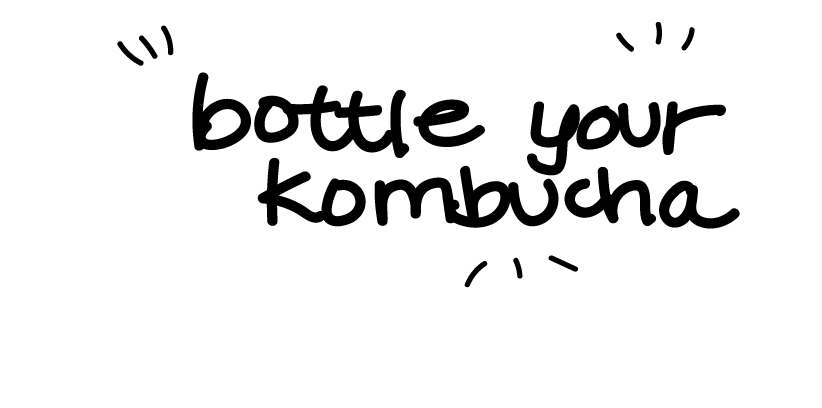 bottle your
kombucha